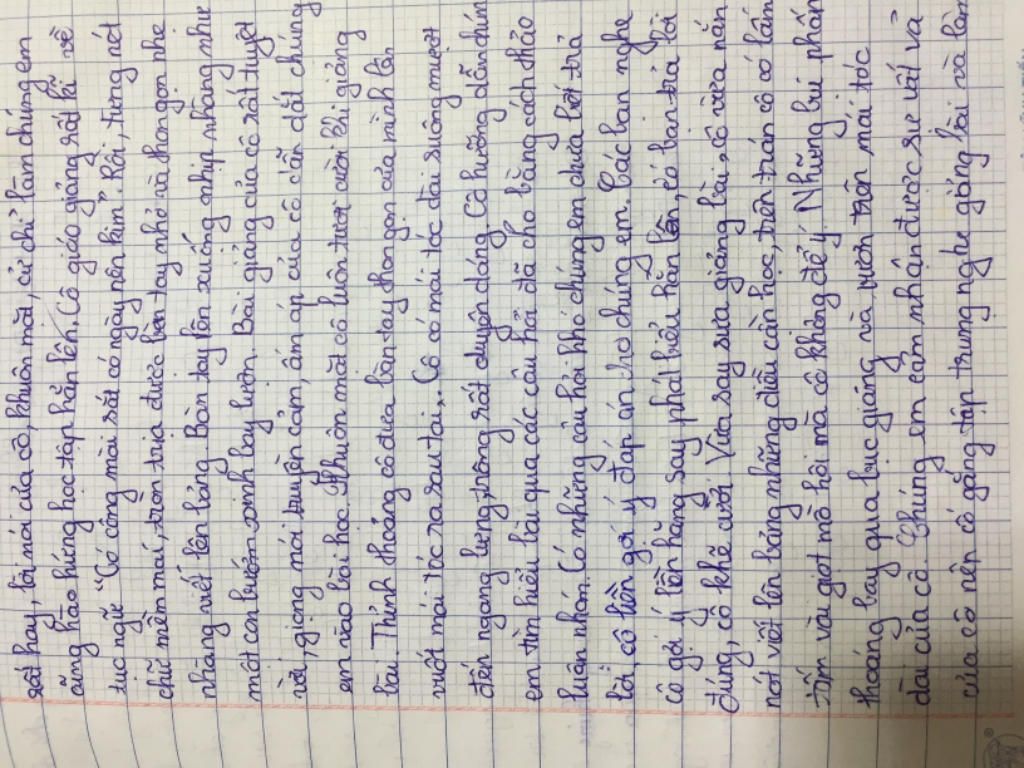 rất hay, lời nói của cô, khuôn mặt, cử chỉ làm chúng em
cũng hào hứng học tập hẳn lên. Cô giáo giảng rất kĩ về
tục ngữ "Có công mài sắt có ngày nên kim". Rồi, từng nét
chữ mềm mại, tròn trịa được bàn tay nhỏ và thon gọn nhẹ
nhàng viết lên bảng. Bàn tay lên xuống nhịp nhàng như
một con bướm xinh bay lượn. Bài giảng của cô rất tuyệt
vời, giọng nói truyền cảm, ấm áp của cô dẫn dắt chúng
em vào bài học. Khuôn mặt cô luôn tươi cười khi giảng
bài. Thỉnh thoảng cô đưa bàn tay thon gọn của mình lên
vuốt mái tóc ra sau tai... Cô có mái tóc dài suông mượt
đến ngang lưng, trông rất duyên dáng. Cô hướng dẫn chúng
em tìm hiểu bài qua các câu hỏi đã cho bằng cách thảo
luận nhóm. Có những câu hỏi khó chúng em chưa biết trả
lời, cô liền gợi ý đáp án cho chúng em. Các bạn nghe
cô gợi ý liền hăng say phát biểu hẳn lên, có bạn trả lời
đúng, cô khẽ cười. Vừa say sưa giảng bài, cô vừa nắn
nót viết lên bảng những điều cần học, trên trán cô có lấm
tấm vài giọt mồ hôi mà cô không để ý. Những bụi phấn
thoáng bay qua bục giảng và vươn trên mái tóc
dài của cô. Chúng em cảm nhận được sự vất vả
của cô nên cố gắng tập trung nghe giảng bài và làm